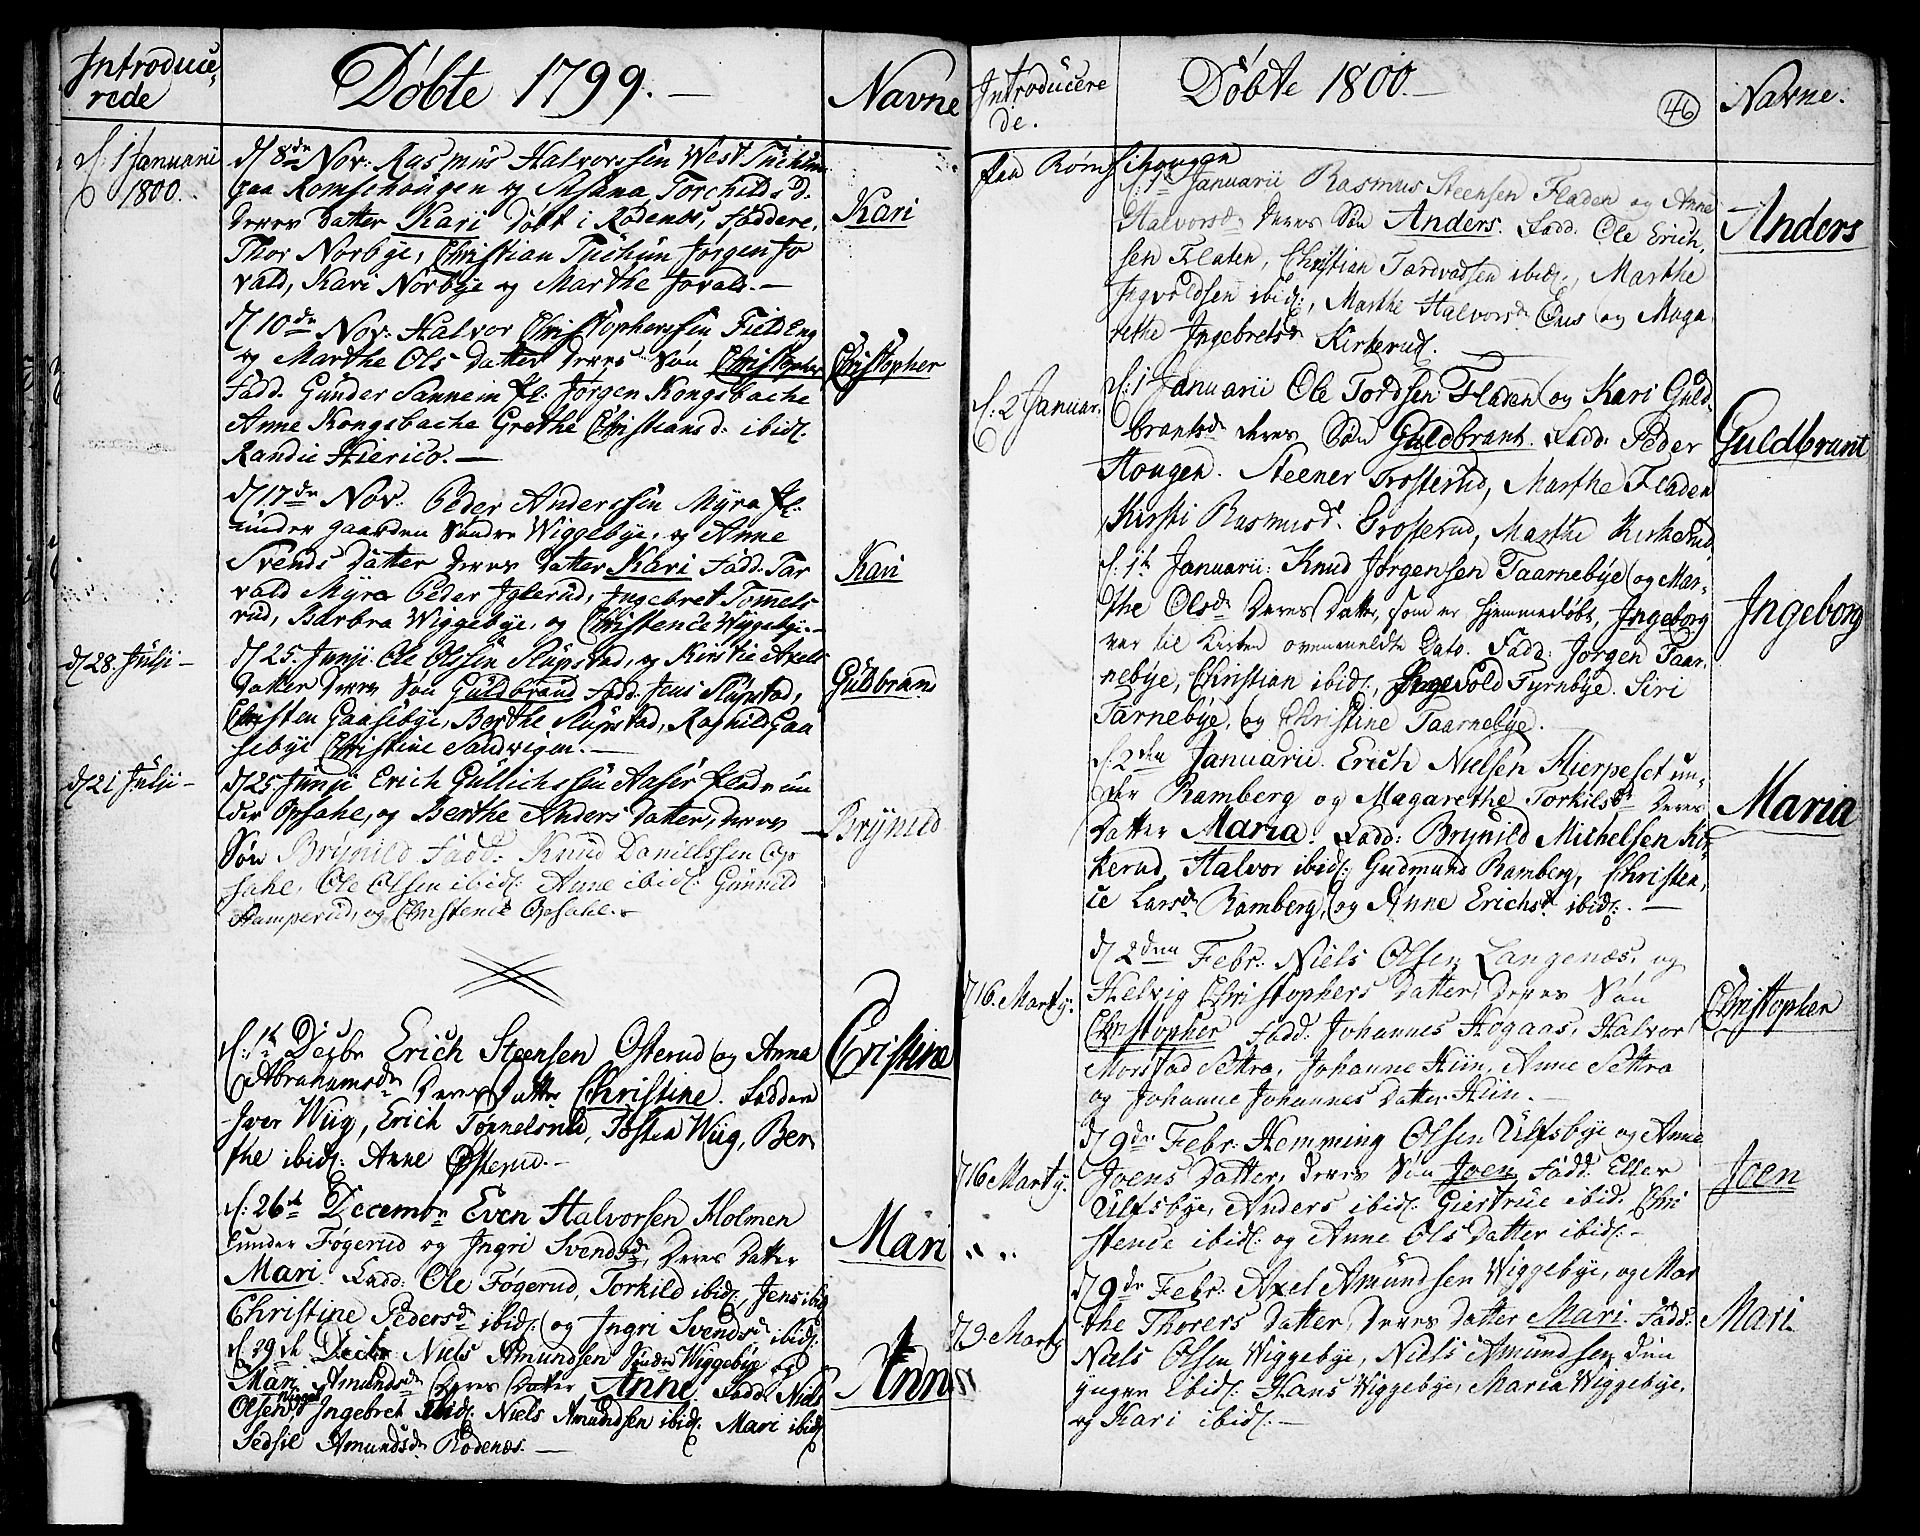 Introduce-
rede
Döbte 1799.
Navne
d. 1 Januarii
1800.
d. 8de Nov: Rasmus Halvorssen West Tuchun
paa Romsehougen og Susana Torchilds D.
deres datter Kari döbt i Rödenes, Faddere,
Thor Norbye, Christian Tuchun Jørgen Jo
vald, Kari Norbye og Marthe Jovald.
Kari
d. 10de Nov: Halvor Christopherssen Field Eng
og Marthe Ols Datter deres Søn Christopher
Fadd. Gunder Sannem fl: Jørgen Kongsbache
Anne Kongsbache Grethe Christiansd. ibid.
Randie Hierico.
Christopher
d. 17de Nov: Peder Anderssen Myra fl:
under gaarden Søndre Wiggebye, og Anne
Svends Datter deres datter Kari Fadd. Tar
vald Myra Peder Iglerud, Ingebret Tommels
rud, Barbra Wiggebye, og Christence Wiggebye.
Kari
d. 28. Julii
d. 25. Junii. Ole Olssen Slupstad, og Kirstie Axels
Datter deres Søn Guldbrand Fadd. Jens Slupstad,
Christen Gaasebye, Berthe Slupstad, Raghild Gaa
sebye Christine Sandvigen.
Guldbrand
d. 21 Julii
d. 25. Junii Erich Gullichssen Aaser flade un
der Opsahe, og Berthe Anders Datter, deres
Søn Brynild Fadd: Knud Danielssen Op
sahe, Ole Olsen ibid: Anne ibid: Gunnild
Stamperud, og Christence Opsahe.
Brynild
d. 1ste Decbr Erich Steensen Osterud og Anna
Abrahamsdr Deres Datter Christine. Faddere
Iver Wiig, Erich Tørnelsrud, Tosten Wiig, Ber
the ibid: Anne Østerud.
Cristine
d. 26de Decembr Even Halvorsen Holmen
under Føgerud og Ingri Svendsdr, Deres Datter
Mari. Fadd: Ole Føgerud, Torkild ibid:, Jens ibid
Christine Pedersdr ibid: og Ingri Svendsdr ibid:
Mari
d. 29de Decbr Niels Amundsen Sundre Wiggebye og
Mari Amundsdr Deres Datter Anne. Fadd: Niels
Olsen Wigge, Ingebret ibid: Niels Amundsen ibid: Mari ibid
Sedsie Amundsdr Rødenæs.
Anne
Introducere
de.
Döbte 1800.
46
Navne.
paa Rømsehougen
d. 1ste Januarii Rasmus Steensen Fladen og Anne
Halvorsdr Deres Søn Anders. Fadd: Ole Erich-
sen Flaten, Christian Tardvadsen ibid:, Marthe
Ingvoldsen ibid:, Marthe Halvorsdr Enes og Maga
rethe Ingebretsdr Kirkerud.
Anders
d. 2 Januar.
d. 1 Januarii Ole Tordsen Fladen og Kari Guld-
brantsdr deres Søn Guldbrant. Fadd: Peder
Hougen. Steener Trosterud, Marthe Fladen
Kirsti Rasmusd. Trosterud, Marthe Kirkerud.
Guldbrant
d. 1ste Januarii: Knud Jørgensen Taarnebye og Mar-
the Olsdr Deres Datter, som er hjemmedøbt, Ingeborg
var til Kirken ovenmeldte Dato. Fadd: Jorgen Taar-
nebye, Christian ibid:, Ingevold Tyrnbye. Siri
Tarnebye, og Christine Taarnebye.
Ingeborg
d. 2den Januarii. Erich Nielsen Hierpeset un-
der Ramberg og Magarethe Torkilsdr Deres
Datter Maria. Fadd: Brynild Michelsen Kir-
kerud, Halvor ibid: Gudmund Ramberg, Christen-
ce Larsdr Ramberg, og Anne Erichsdr ibid:.
Maria
d. 16. Martij.
d. 2den Febr: Niels Olsen Langenæs, og
Helvig Christophers datter, deres Søn
Christopher Fadd: Johannes Hogaas, Halvor
Morstad Sættra, Johanne Hiin, Anne Settra
og Johanne Johannes Datter Hiin.
Christopher
d. 16 Martij.
d. 9de Febr: Hemming Olsen Ulfsbye og Anne
Joens Datter, deres Søn Joen Fadd: Eller
Ulfsbye, Anders ibid: Giertrue ibid. Chri
stence ibid: og Anne Ols Datter ibid:
Joen
d. 9. Martij
d. 9de Febr: Axel Amundsen Wiggebye, og Mar
the Thorers Datter, deres datter Mari. Fadd:
Niels Olsen Wiggebye, Niels Amundsen den
yngre Ibid: Hans Wiggebye, Maria Wiggebye.
og Kari ibid:
Mari